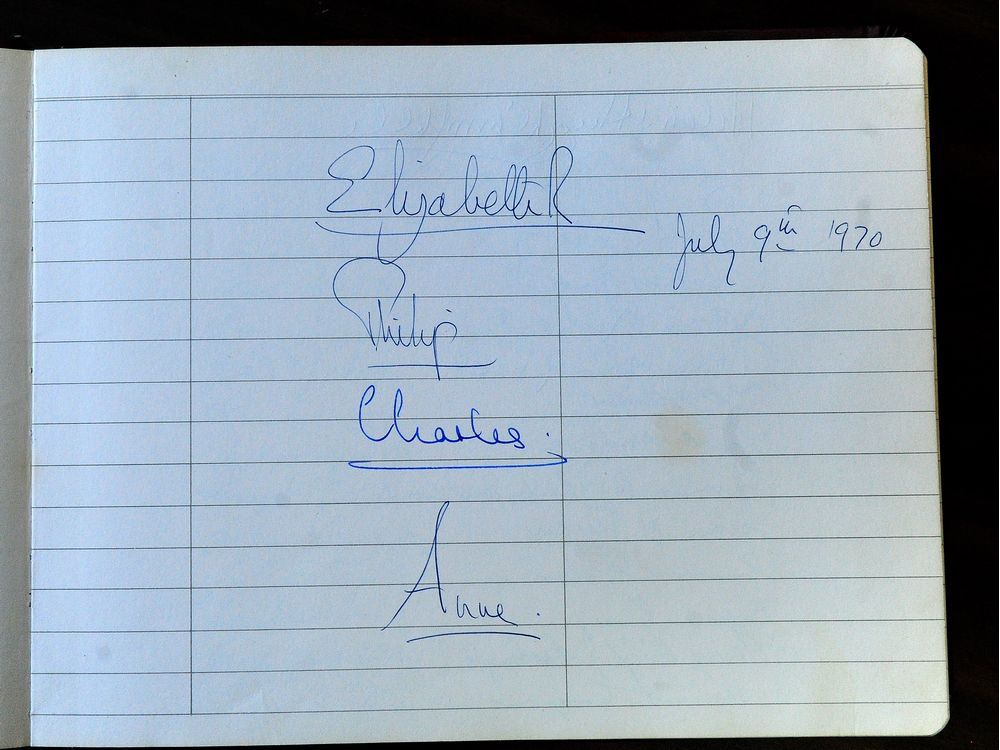 Elizabeth R
July 9th 1970
Philip
Charles.
Anne.